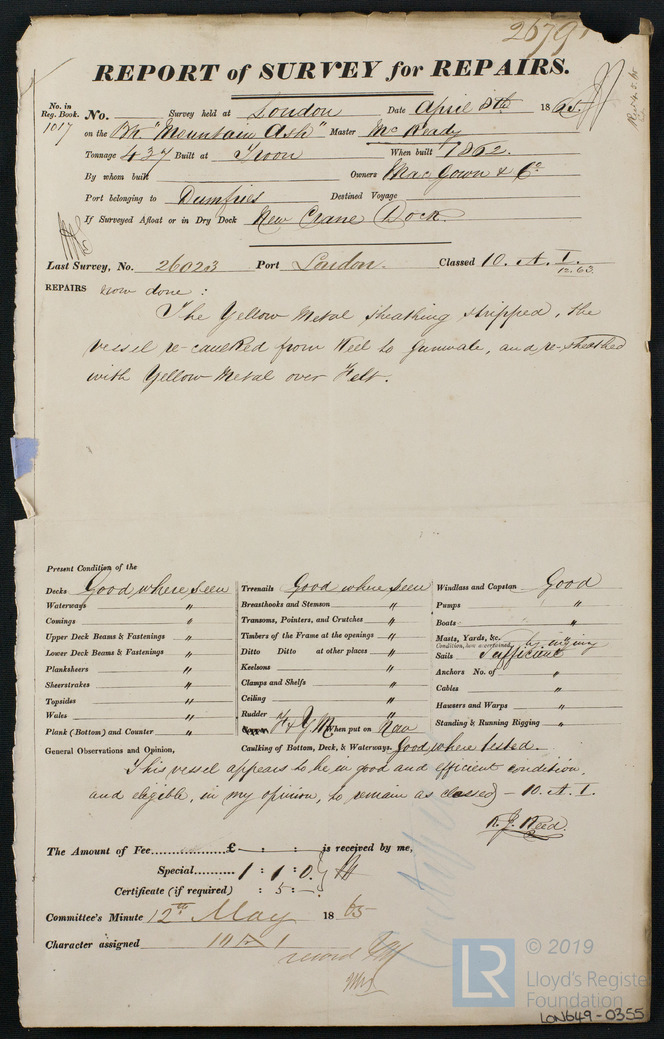 2679
REPORT of SURVEY for REPAIRS.
No. in Reg. Book. No. Survey held at London Date April 8th 1865
1017 on the Bk "Mountain Ash" Master
Tonnage 437 Built at Troon When built 1862.
By whom built Owners MacGown & Co
Port belonging to Dumfries Destined Voyage
If Surveyed Afloat or in Dry Dock New Crane Dock
Last Survey, No. 26023 Port London. Classed 10. A. I. 12.63.
REPAIRS now done :
The Yellow Metal sheathing stripped, the
vessel re-caulked from Keel to Gunwale, and re-sheathed
with Yellow Metal over Felt.
Present Condition of the
Decks Good where seen Treenails Good where seen Windlass and Capstan Good
Waterways " Breasthooks and Stemson " Pumps "
Comings " Transoms, Pointers, and Crutches " Boats "
Upper Deck Beams & Fastenings " Timbers of the Frame at the openings " Masts, Yards, &c.
Condition, how ascertained, by
Lower Deck Beams & Fastenings " Ditto Ditto at other places " Sails Sufficient
Planksheers " Keelsons " Anchors No. of "
Sheerstrakes " Clamps and Shelfs " Cables "
Topsides " Ceiling " Hawsers and Warps "
Wales " Rudder " Standing & Running Rigging "
Plank (Bottom) and Counter " F & YM When put on Now
General Observations and Opinion, Caulking of Bottom, Deck, & Waterways. Good where tested.
This vessel appears to be in good and efficient condition,
and eligible, in my opinion, to remain as classed – 10. A. I.
R. J. Reed.
The Amount of Fee £ : : is received by me,
Special 1 : 1 : 0
Certificate (if required) : 5 : –
Committee's Minute 12th May 1865
Character assigned 10 A 1
© 2019
LR Lloyd's Register
Foundation
LON649-0355